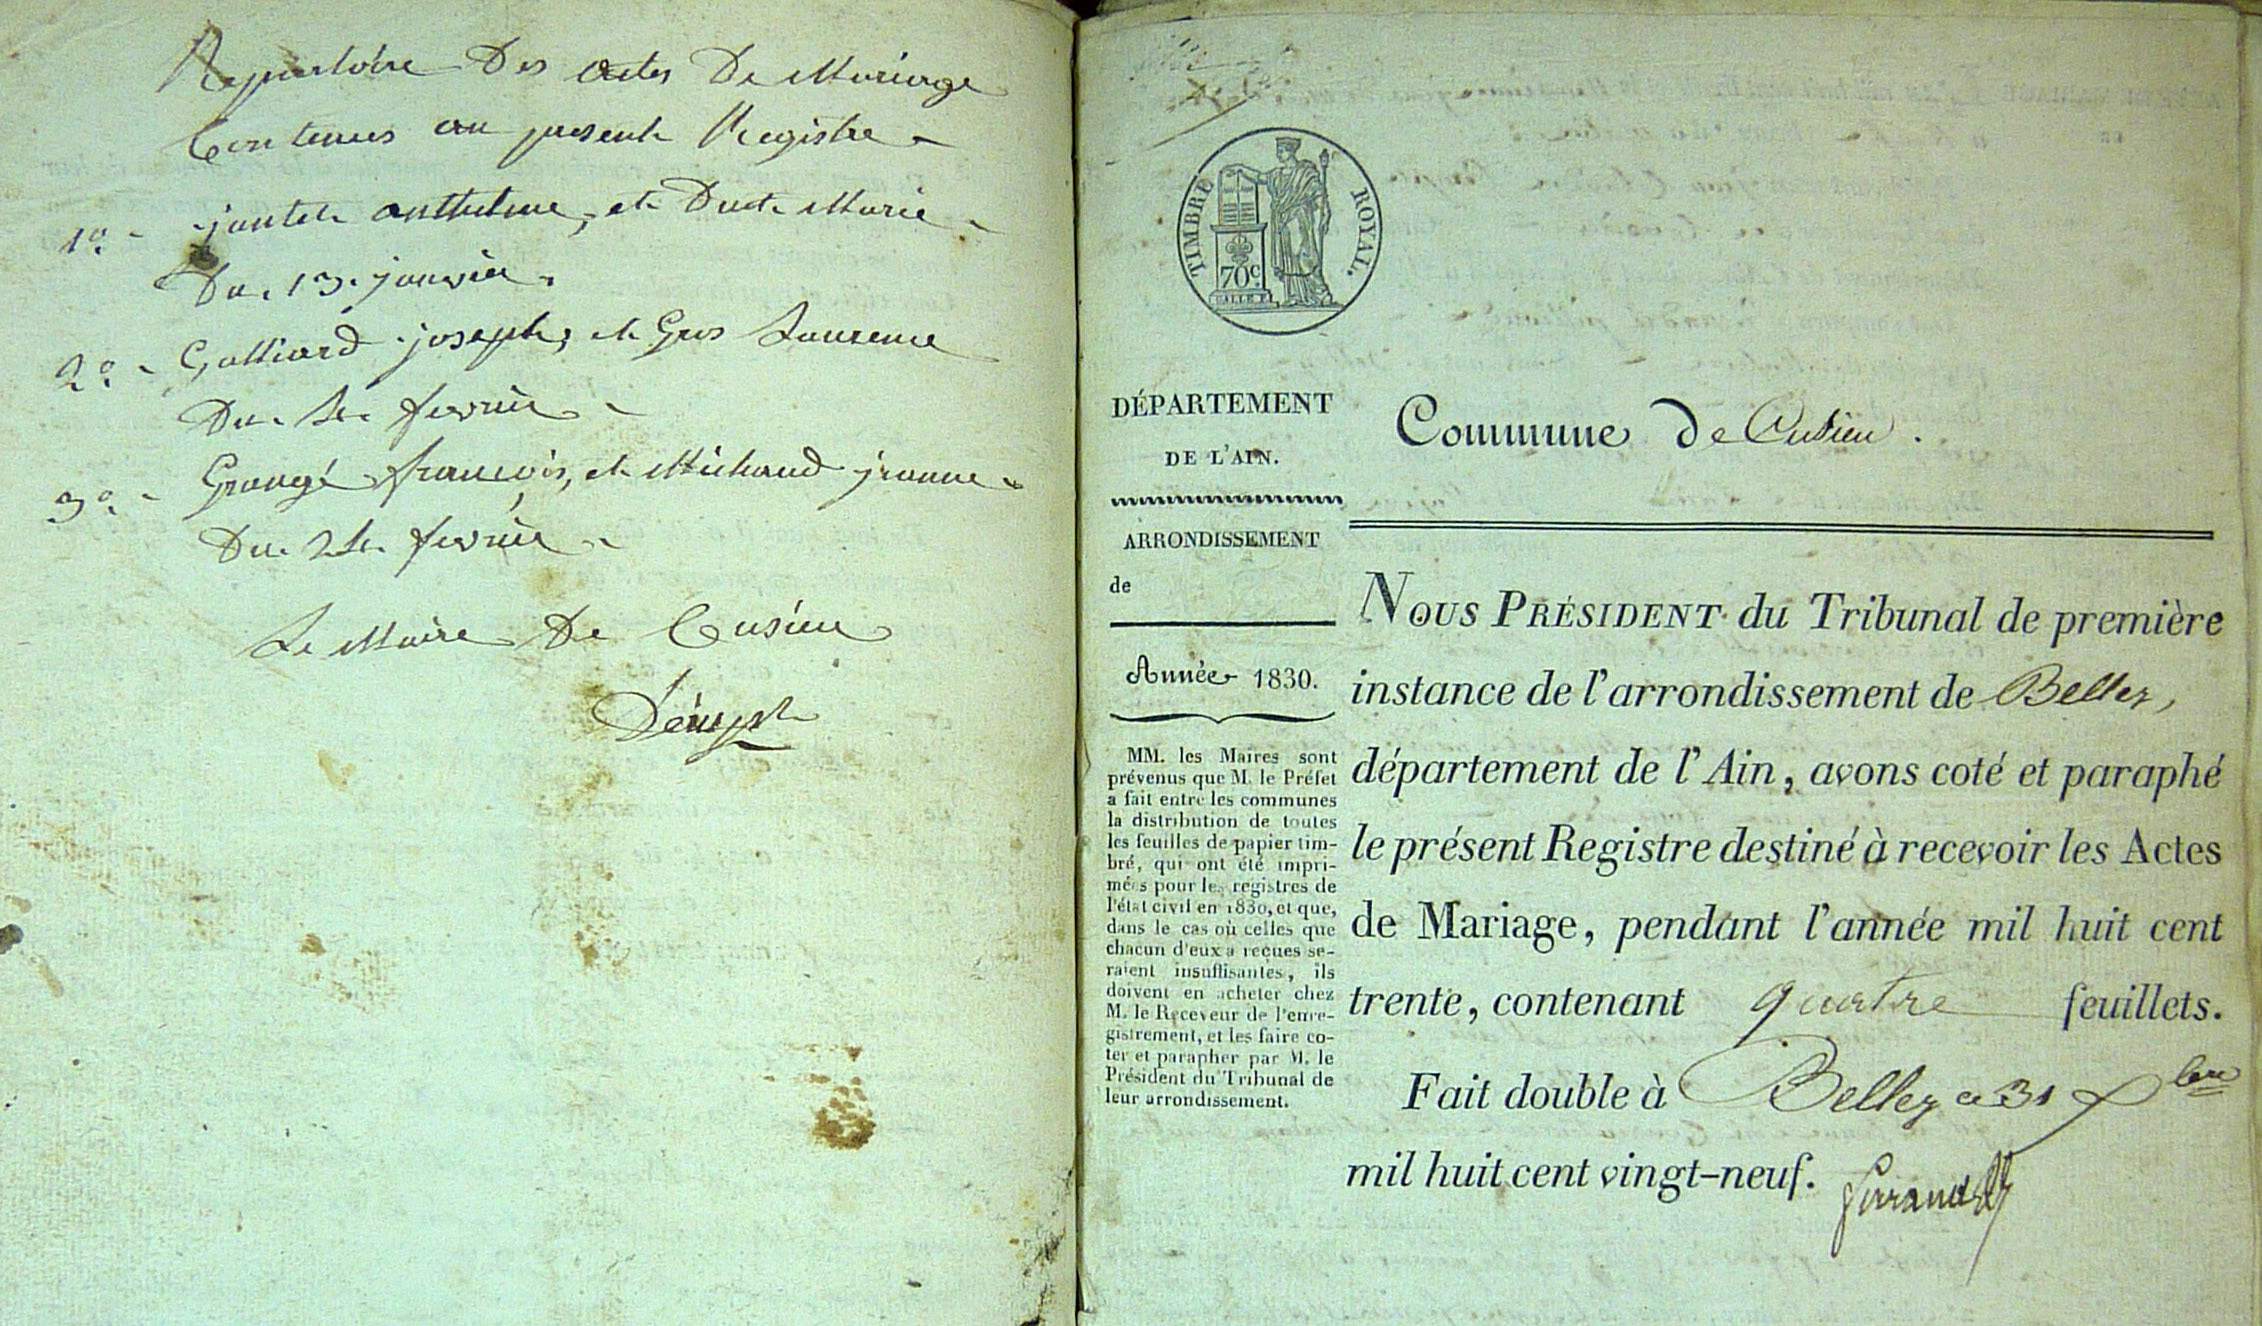 Repertoire Des actes De Mariage
Contenus au present Registre
1o. jantet anthelme, et Duct Marie
Du. 13. janvier.
2o. Galliard joseph, et Gros Laurence
Du. 4. fevrier
3o. Grangé françois, et Michaud jeanne
Du. 24. fevrier
Le Maire De Cusieu
TIMBRE ROYAL.
70c
DÉPARTEMENT
DE L'AIN.
Commune de Cusieu.
ARRONDISSEMENT
de
Année 1830.
MM. les Maires sont
prévenus que M. le Préfet
a fait entre les communes
la distribution de toutes
les feuilles de papier tim-
bré, qui ont été impri-
mées pour les registres de
l'état civil en 1830, et que,
dans le cas où celles que
chacun d'eux a reçues se-
raient insuffisantes, ils
doivent en acheter chez
M. le Receveur de l'enre-
gistrement, et les faire co-
ter et parapher par M. le
Président du Tribunal de
leur arrondissement.
NOUS PRÉSIDENT du Tribunal de première
instance de l'arrondissement de Belley,
département de l'Ain, avons coté et paraphé
le présent Registre destiné à recevoir les Actes
de Mariage, pendant l'année mil huit cent
trente, contenant quatre feuillets.
Fait double à Belley ce 31 Xbre
mil huit cent vingt-neuf.